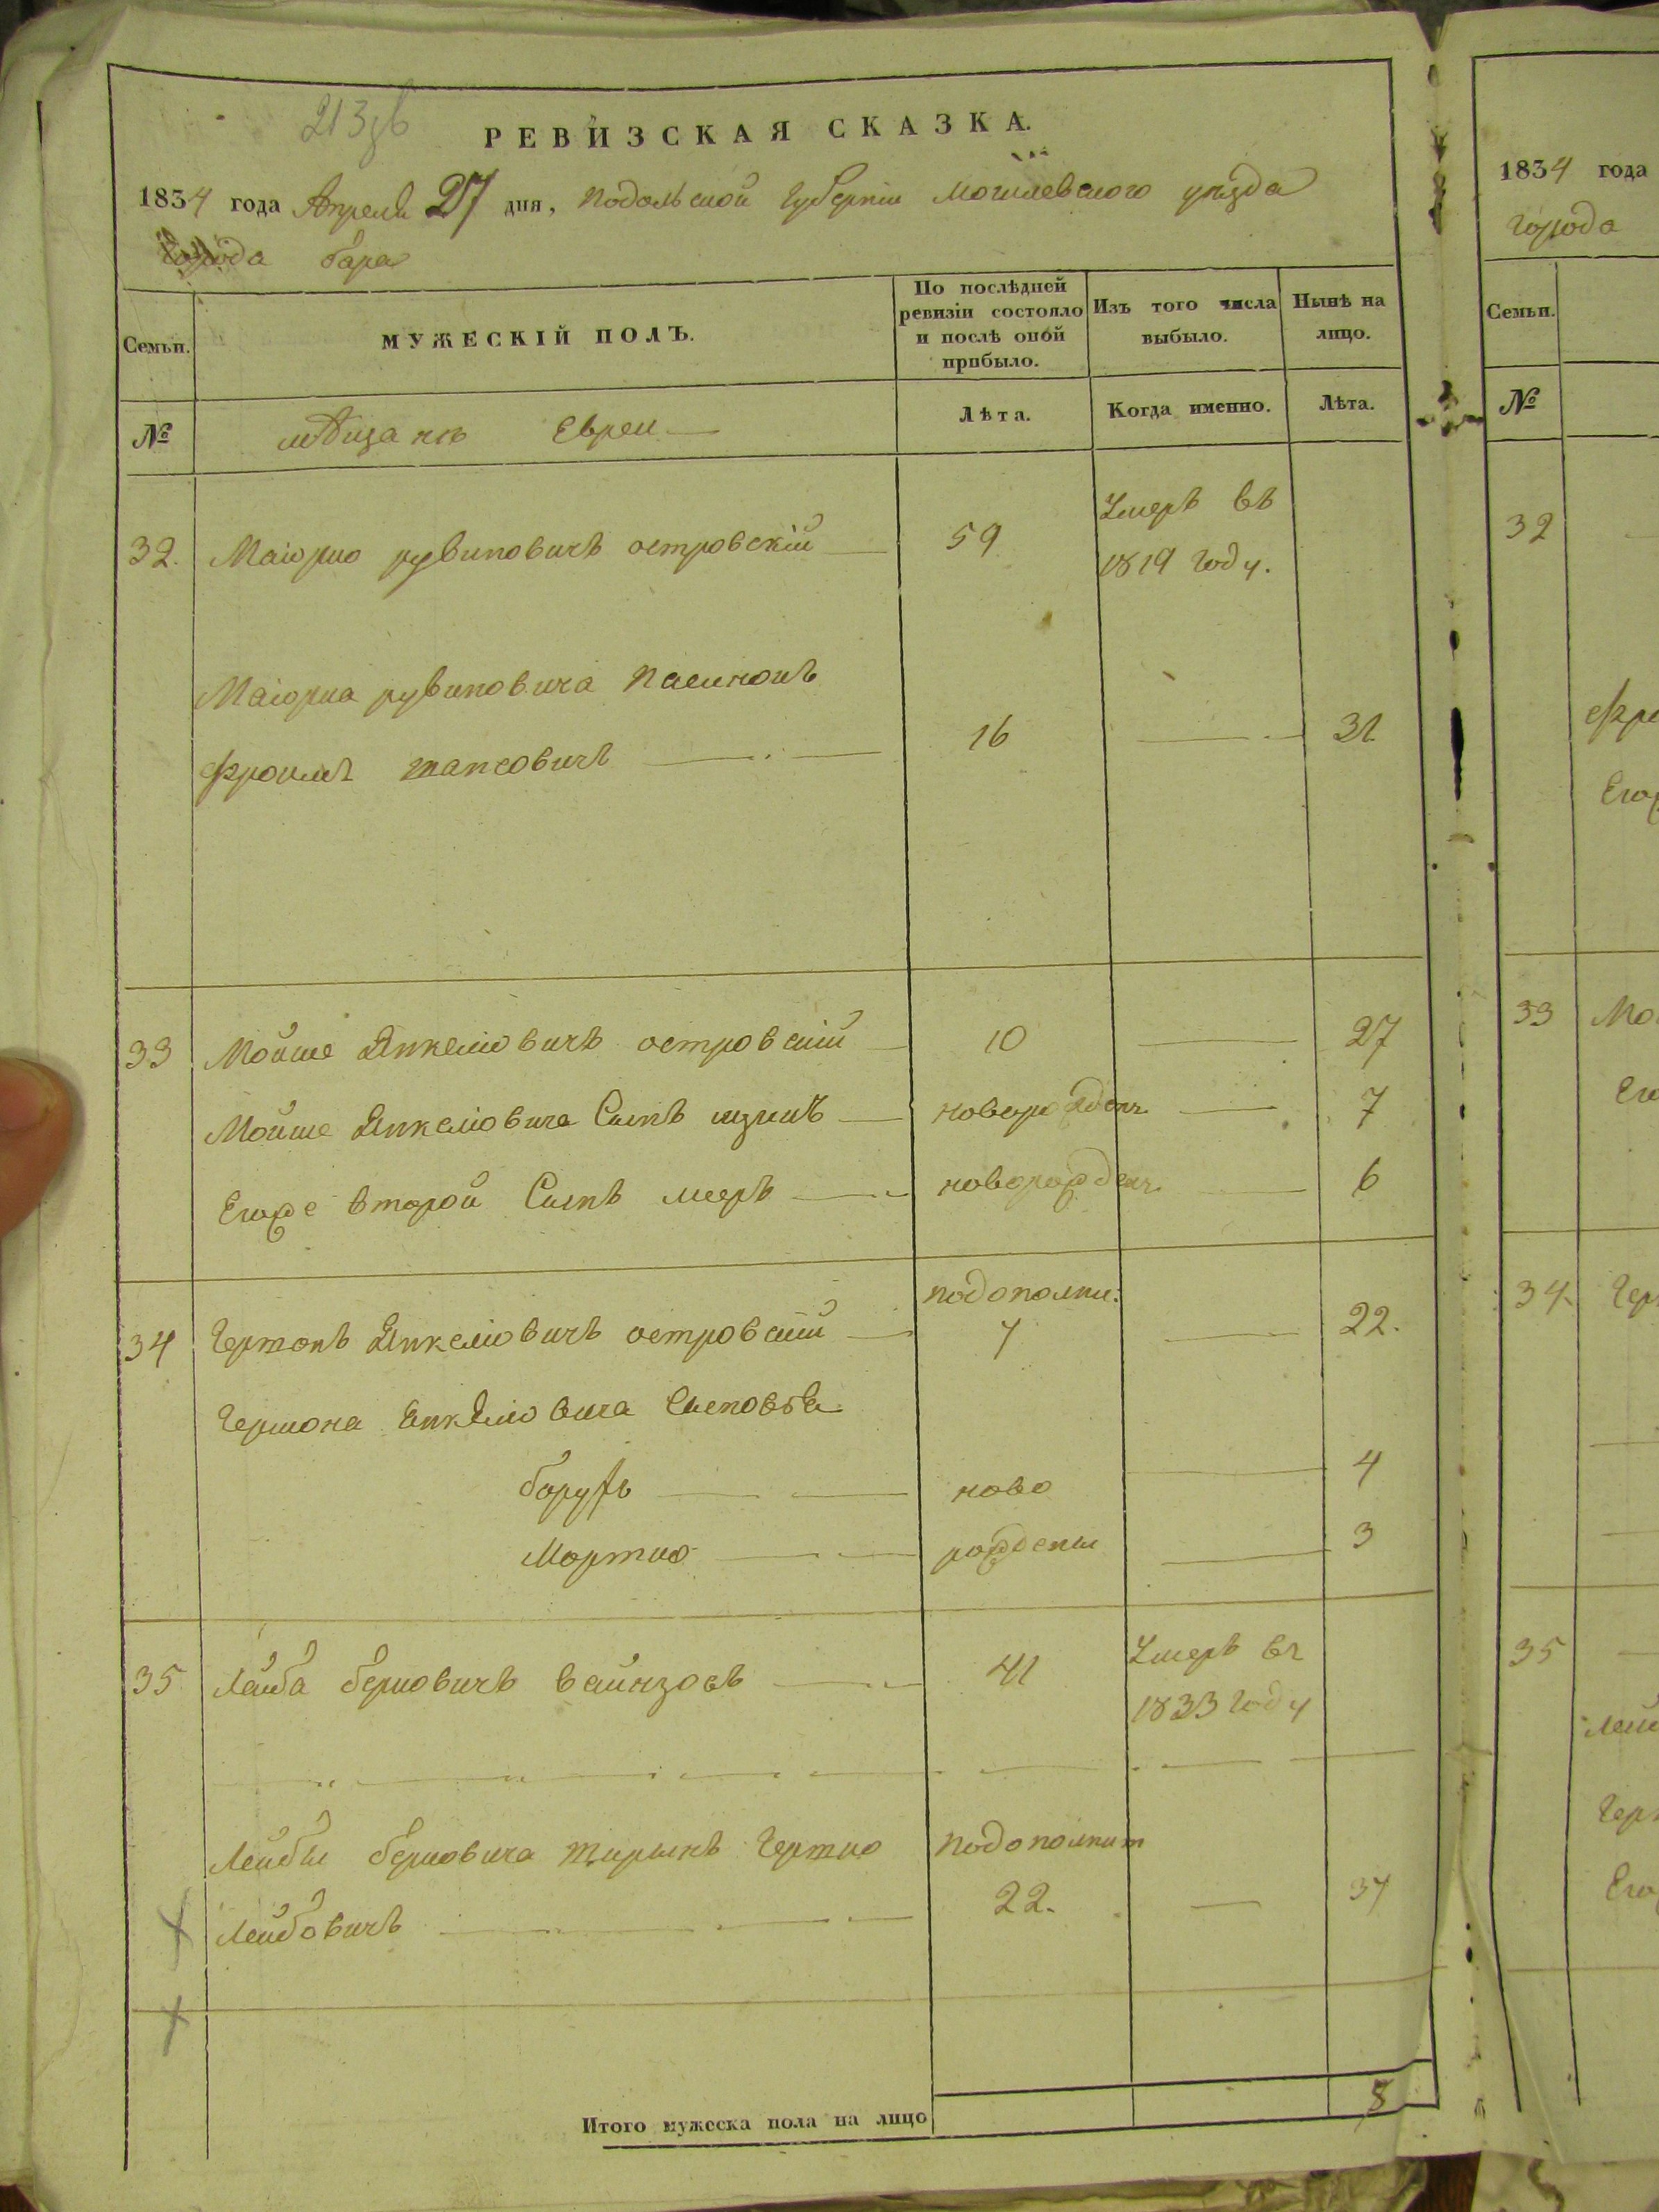 213
РЕВИЗСКАЯ СКАЗКА.
1834 года Апреля 27 дня, подольской губернiи могилевского уезда
города бара
Семьи. МУЖЕСКІЙ ПОЛЪ. По послѣдней ревизіи состояло и послѣ оной прибыло. Изъ того числа выбыло. Нынѣ на лицо.
№ мѣщане Евреи Лѣта. Когда именно. Лѣта.
32. Маіорко рувиновичъ островскій 59 Умеръ въ
1819 году.
рувиновича Пасинокъ
Фроимъ 16 31
33 Мойше Янкелiовичъ островскiй 10 27
Мойше Янкелiовича Сынъ новорожден. 7
Егоже второй Сынъ мееръ новорожден. 6
подополни:
34 Гершонъ Янкелiовичъ островскiй 7 22.
Гершона Янкелiовича Сыновья
борухъ ново 4
Мортко рождены 3
35 Лейба берковичъ вайнзовъ 41 Умеръ въ
1833 году
Лейбы берковича Гершко подополнит
Лейбовичъ 22. 37
Итого мужеска пола на лицо 8
1834 года
города
Семьи.
№
32
33
34
35